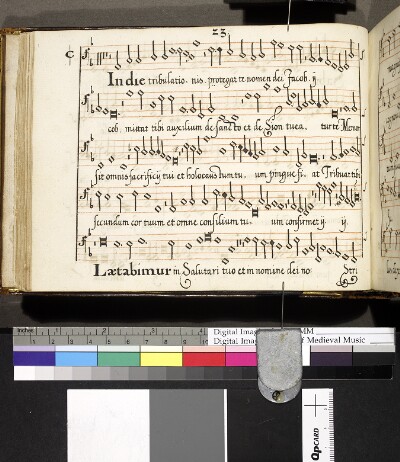 23
In die tribulatio. nis. protegat te nomen dei Jacob. ij
cob. mittat tibi auxilium de sancto et de Sion tuea. tur te Memor
sit omnis sacrificij tui et holocaustum tu. um pingue fi. at Tribuat tibi
secundum cor tuum et omne consilium tu. um confirmet ij ij
Lætabimur in Salutari tuo et in nomine dei no Stri
inches 1 2 3 4
Digital Image
Digital Image of Medieval Music
QPCARD